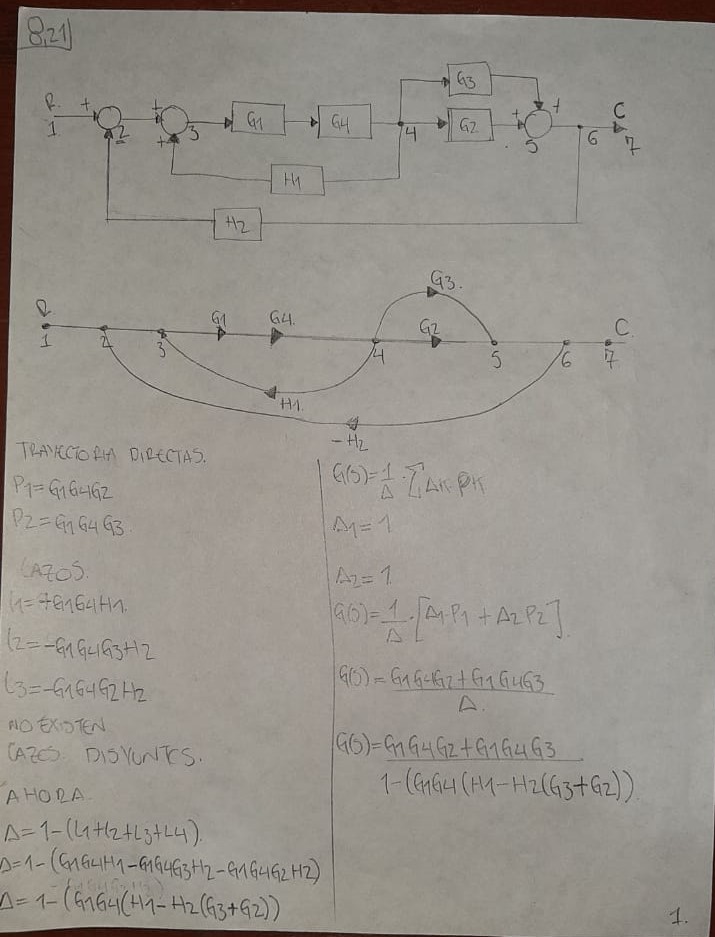 8,21
R + + G1 G4 G3 G2 + + C
1 2 + 3 4 5 6 7
H1
H2
R G1 G4 G3. G2 C
1 2 3 4 5 6 7
H1.
-H2
TRAYECTORIA DIRECTAS.
P1=G1G4G2
P2=G1G4G3
LAZOS.
L1=+G1G4H1.
L2=-G1G4G3H2
L3=-G1G4G2H2
NO EXISTEN
LAZOS DISYUNTOS.
AHORA
Δ=1-(L1+L2+L3+L4).
Δ=1-(G1G4H1-G1G4G3H2-G1G4G2H2)
Δ=1-(G1G4(H1-H2(G3+G2))
G(s)=1/Δ·∑ΔK PK
Δ1=1
Δ2=1.
G(s)=1/Δ·[Δ1P1+Δ2P2].
G(s)=G1G4G2+G1G4G3
Δ.
G(s)=G1G4G2+G1G4G3
1-(G1G4(H1-H2(G3+G2))
1.